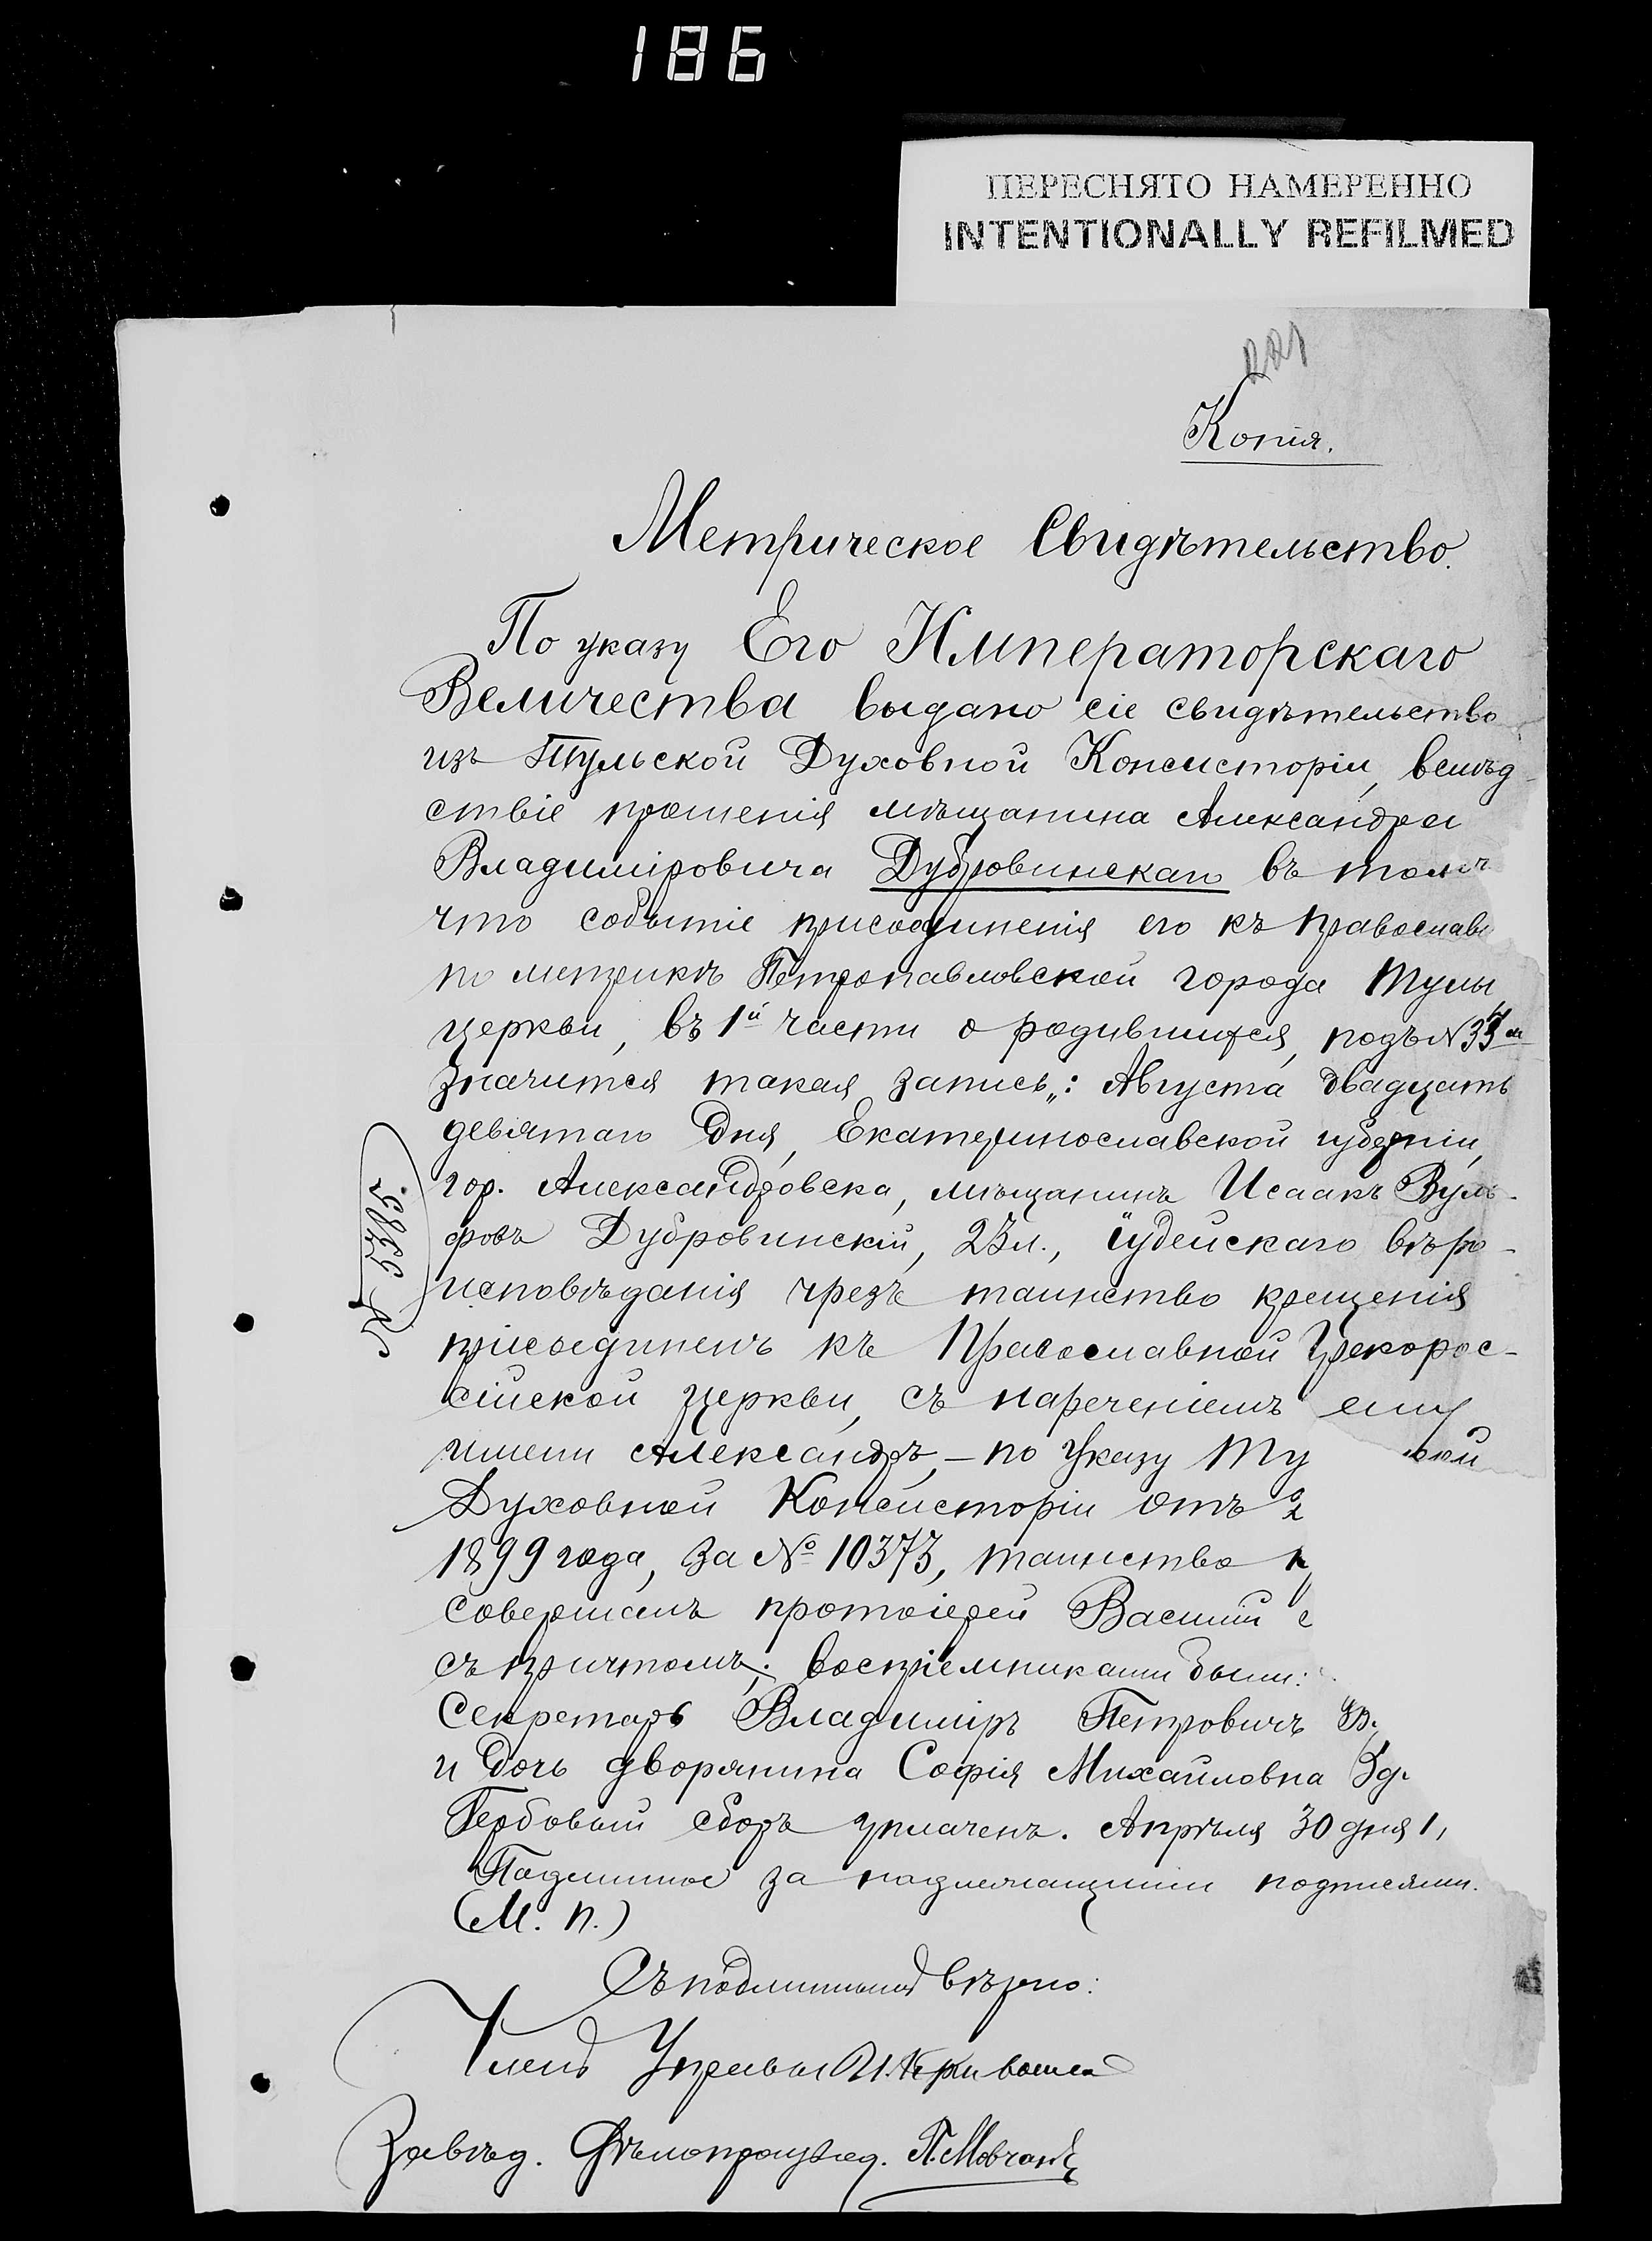 186
ПЕРЕСНЯТО НАМЕРЕННО
INTENTIONALLY REFILMED
Копія.
Метрическое Свидѣтельство.
По указу Его Императорскаго
Величества выдано сіе свидѣтельство
изъ Тульской Духовной Консисторіи, вслѣд-
ствіе прошенія мѣщанина Александра
Владиміровича Дубровинскаго въ томъ
что событіе присоединенія его къ православі
по метрикѣ Петропавловской города Тулы
церкви, въ 1й части о родившихся, подъ №
значится такая запись„: Августа двадцать
девятаго дня, Екатеринославской губерніи,
гор. Александровска, мѣщанинъ Исаакъ Вуль-
фовъ Дубровинскій, 23 л., іудейскаго вѣро-
исповѣданія чрезъ таинство крещенія
присоединенъ къ Православной Грекорос-
сійской церкви, съ нареченіемъ ему
имени Александръ, – по Указу Ту ской
Духовной Консисторіи отъ
1899 года, за № 10373, таинство
совершалъ протоіерей Василій
съ причтомъ; воспріемниками были:
Секретарь Владиміръ Петровичъ
и дочь дворянина Софія Михайловна Зд
Гербовый сборъ уплаченъ. Апрѣля 30 дня 1
Подлинное за надлежащими подписями.
(М. п.)
№ 5385.
Съ подлиннымъ вѣрно:
Членъ Управы
Завѣд. Дѣлопроизвод. П. Мовчанъ